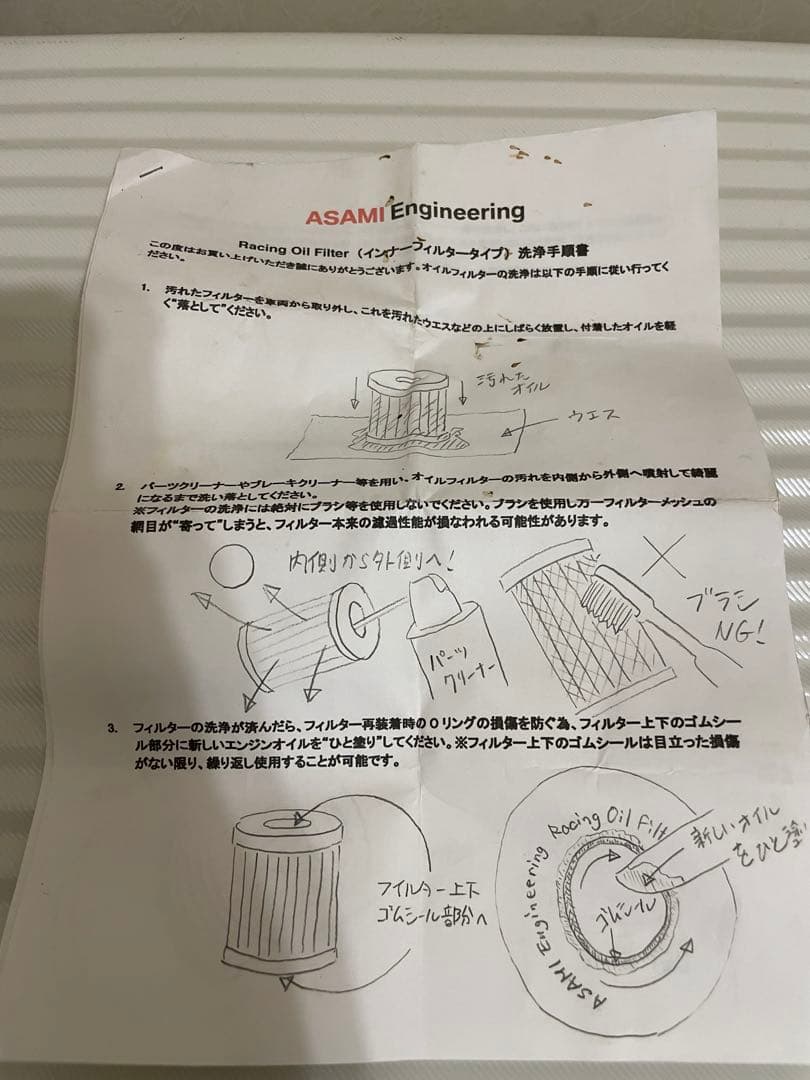 ASAMI Engineering
Racing Oil Filter（インナーフィルタータイプ）洗浄手順書
この度はお買い上げいただき誠にありがとうございます。オイルフィルターの洗浄は以下の手順に従い行ってく
ださい。
1. 汚れたフィルターを車両から取り外し、これを汚れたウエスなどの上にしばらく放置し、付着したオイルを軽
く“落として”ください。
汚れた
オイル
ウエス
2. パーツクリーナーやブレーキクリーナー等を用い、オイルフィルターの汚れを内側から外側へ噴射して綺麗
になるまで洗い落としてください。
※フィルターの洗浄には絶対にブラシ等を使用しないでください。ブラシを使用し万一フィルターメッシュの
網目が“寄って”しまうと、フィルター本来の濾過性能が損なわれる可能性があります。
内側から外側へ!
パーツ
クリーナー
ブラシ
NG!
3. フィルターの洗浄が済んだら、フィルター再装着時のOリングの損傷を防ぐ為、フィルター上下のゴムシー
ル部分に新しいエンジンオイルを“ひと塗り”してください。※フィルター上下のゴムシールは目立った損傷
がない限り、繰り返し使用することが可能です。
フィルター上下
ゴムシール部分へ
ASAMI Engineering Racing Oil Filt
新しいオイル
をひと塗
ゴムシール